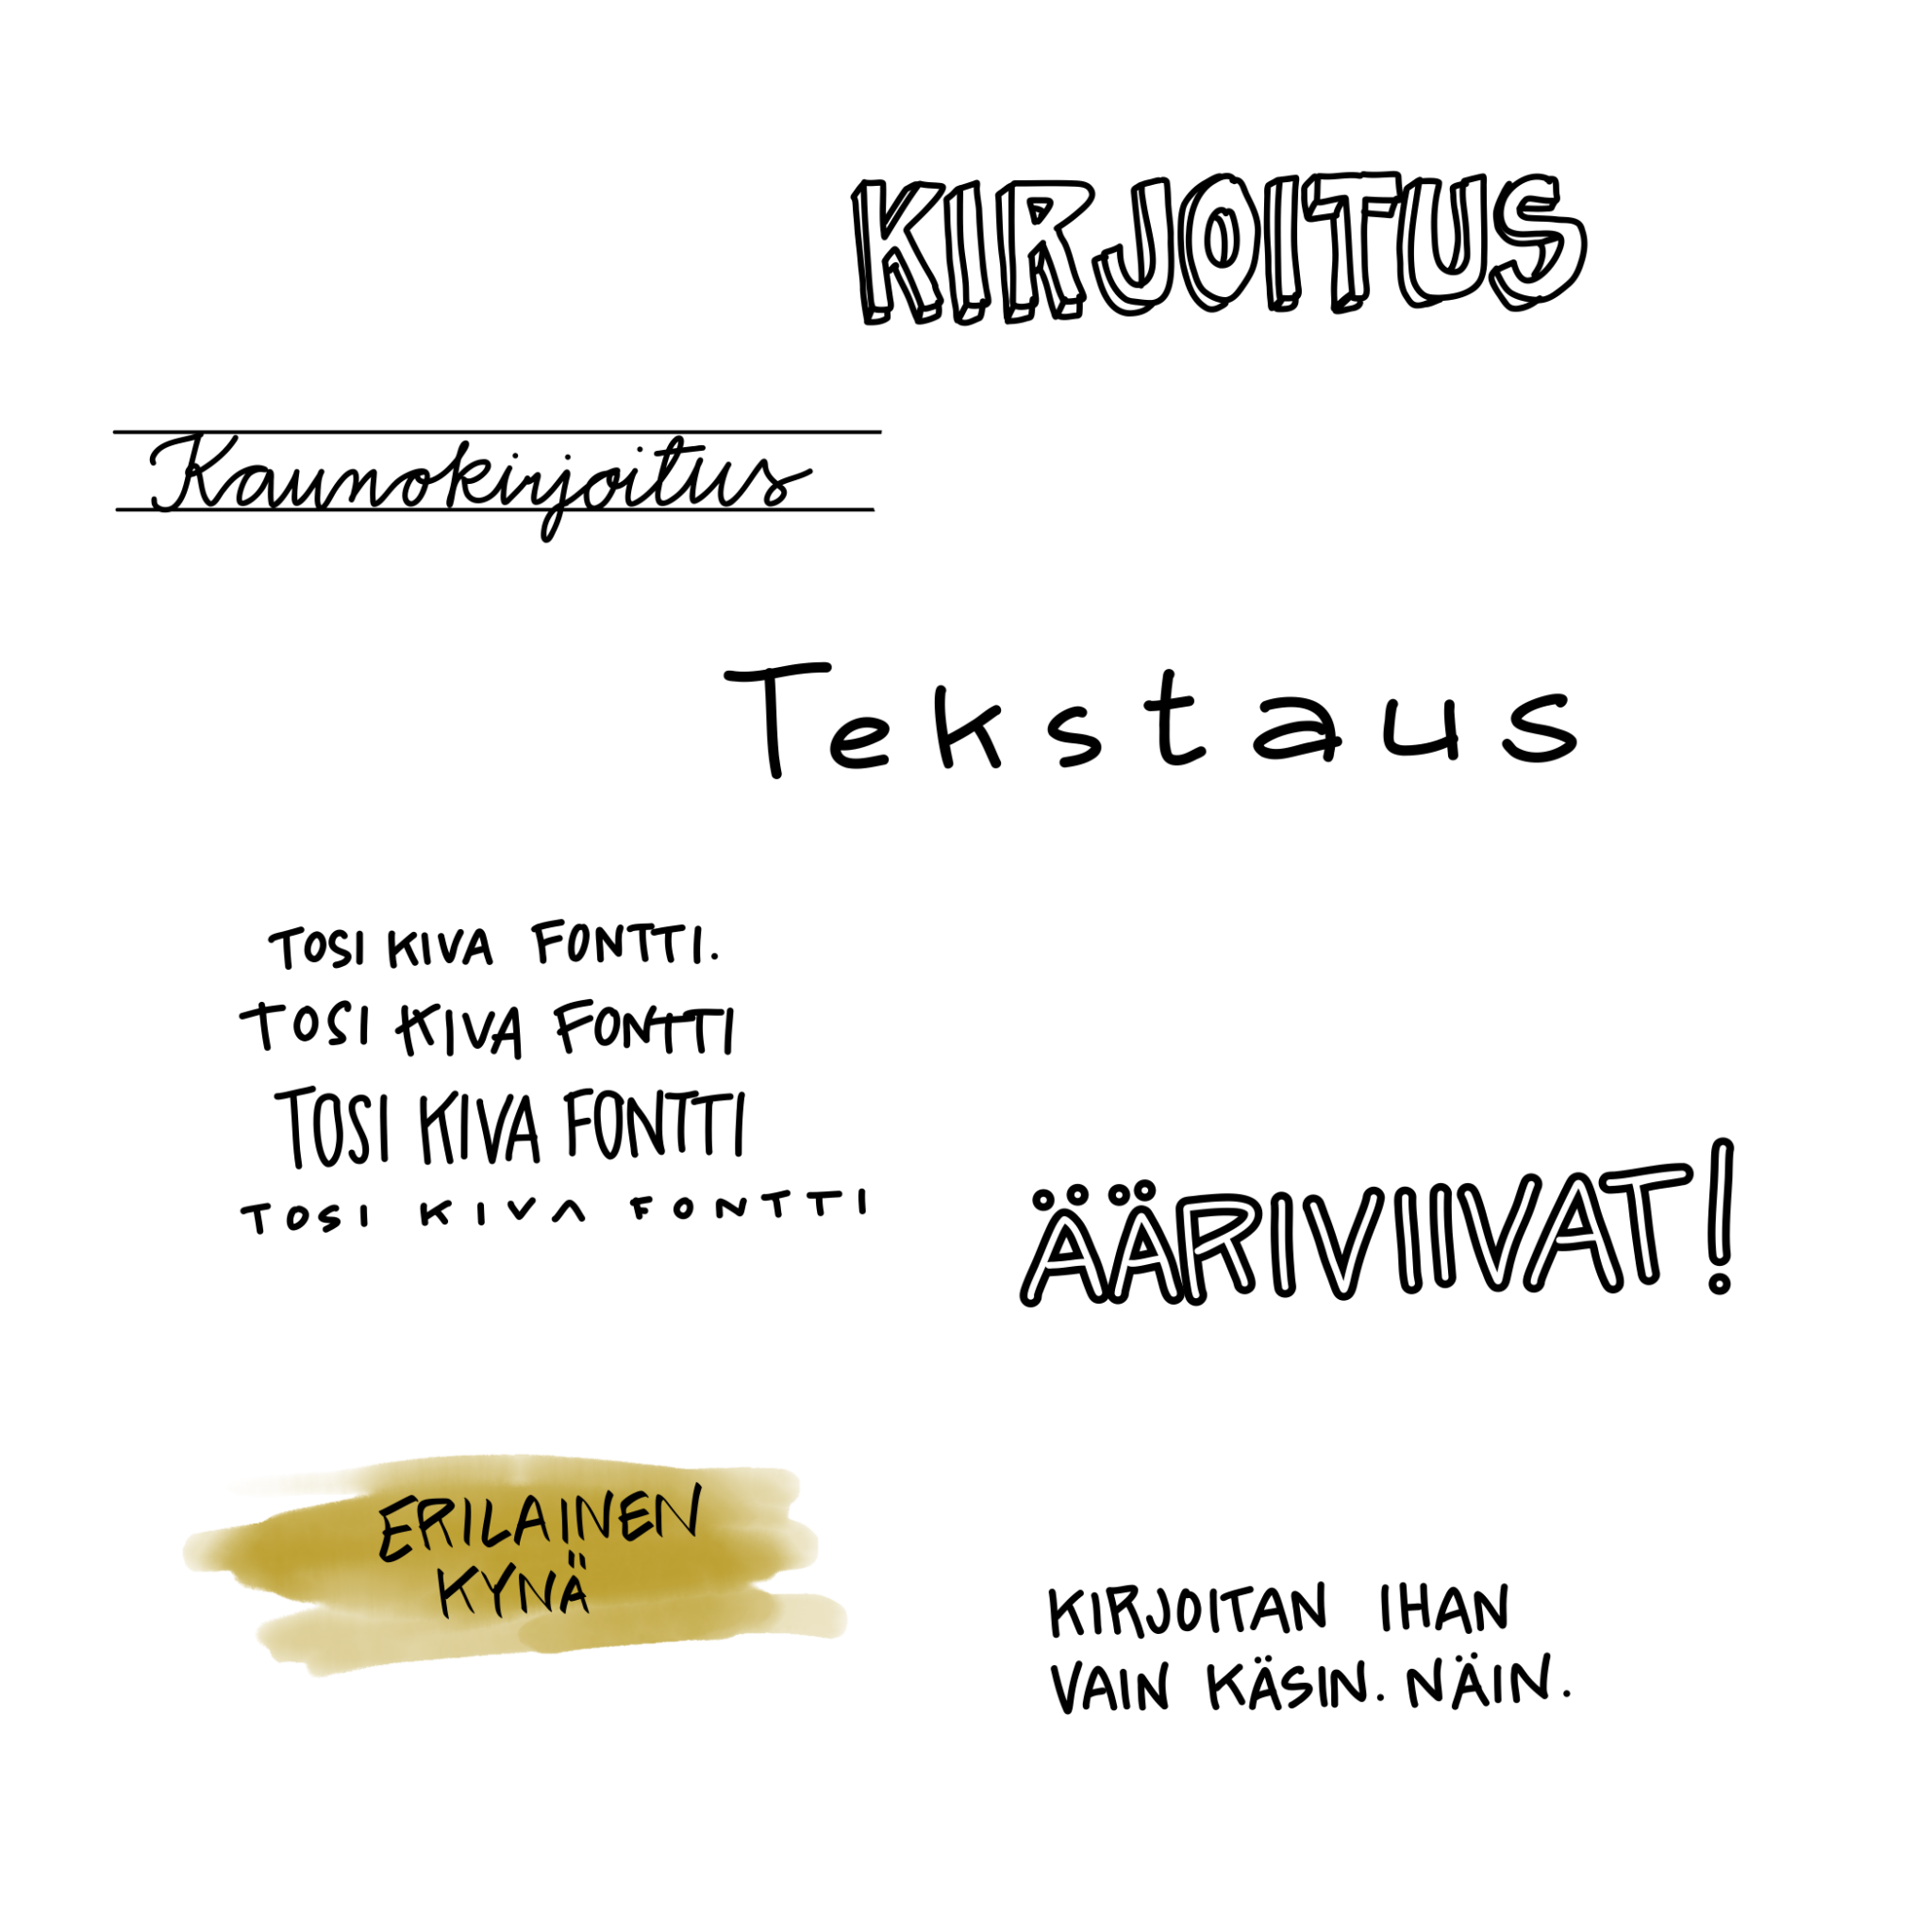 KIRJOITUS
Kaunokirjoitus
Tekstaus
TOSI KIVA FONTTI.
TOSI KIVA FONTTI
TOSI KIVA FONTTI
TOSI KIVA FONTTI
ÄÄRIVIIVAT!
ERILAINEN
KYNÄ
KIRJOITAN IHAN
VAIN KÄSIN. NÄIN.